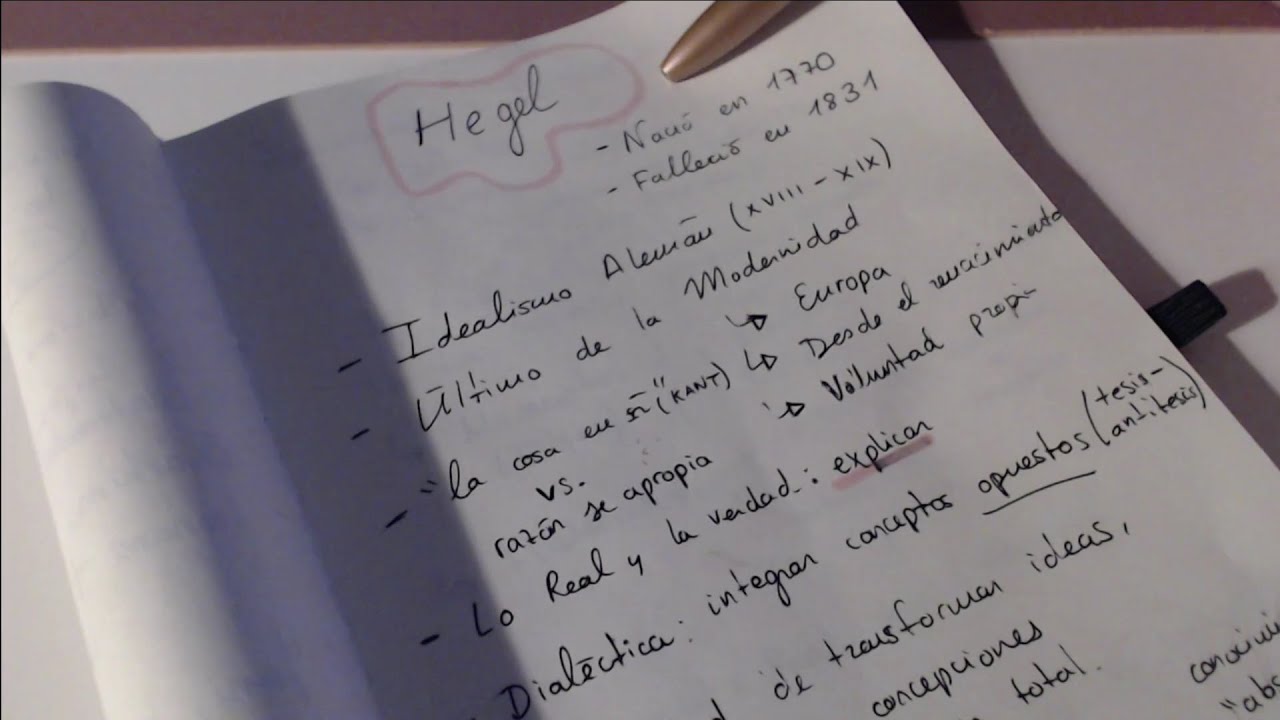 Hegel
- Nació en 1770
- Falleció en 1831
- Idealismo Alemán (XVIII - XIX)
- Último de la Modernidad
↳ Europa
↳ Desde el renacimiento
↳ Voluntad propi-
- "la cosa en sí" (KANT)
vs.
razón se apropia
- Lo Real y la verdad: explicar
Dialéctica: integrar conceptos opuestos (tesis-
antitesis)
de transformar ideas,
concepciones
total.
"abs